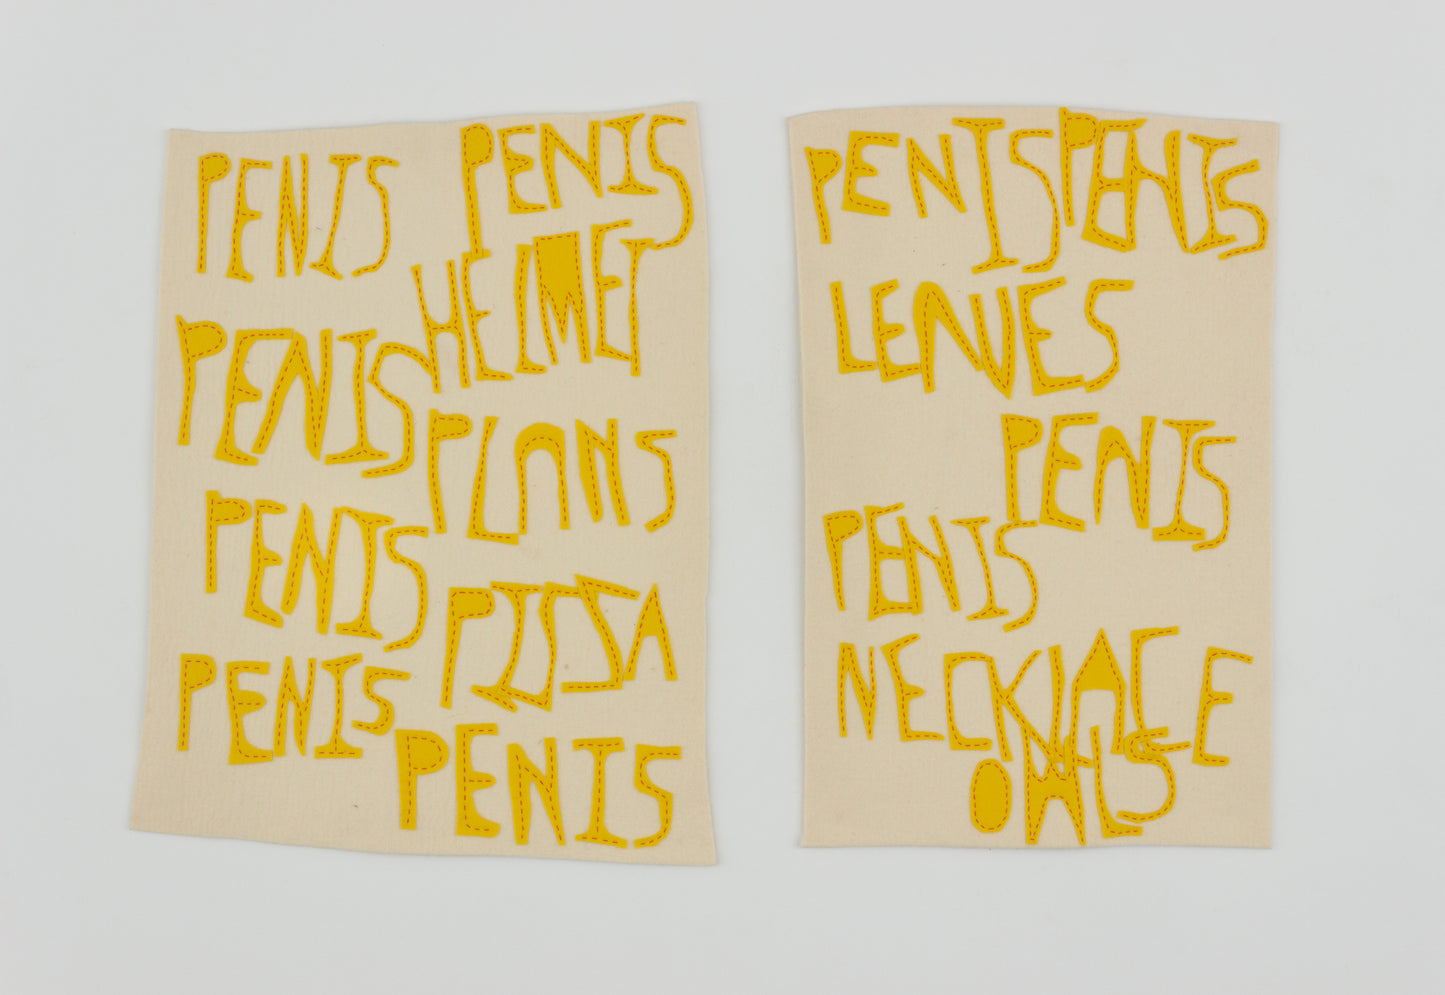 PENIS PENIS
HELMET
PENIS PLANS
PENIS PISSA
PENIS PENIS
PENIS PENIS
LEAVES
PENIS
PENIS
NECKLACE
OWLS